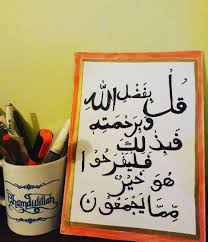 قُل بِفَضْلِ اللّٰه
وَبِرَحْمَتِهِ
فَبِذَٰلِكَ
فَلْيَفْرَحُوا
هُوَ خَيْرٌ
مِّمَّا يَجْمَعُونَ
Alhamdulillah